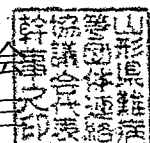 山形県難病
等団体連絡
協議会代表
幹事之印
会